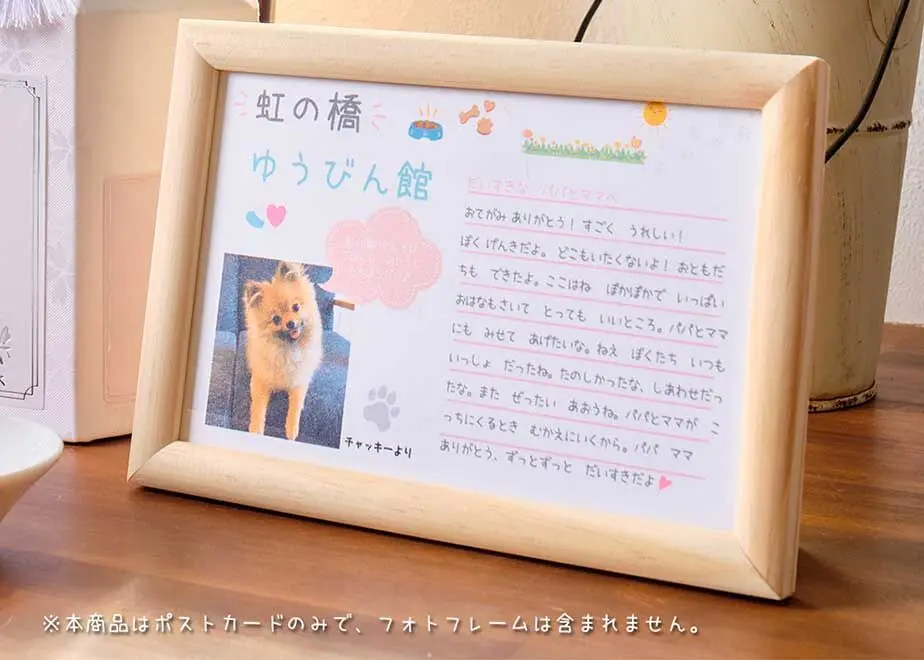 虹の橋
ゆうびん館
だいすきな パパとママへ
おてがみ ありがとう！ すごく うれしい！
ぼく げんきだよ。 どこもいたくないよ！ おともだ
ちも できたよ。ここはね ぽかぽかで いっぱい
おはなもさいて とっても いいところ。パパとママ
にも みせて あげたいな。ねえ ぼくたち いつも
いっしょ だったね。たのしかったな、しあわせだっ
たな。また ぜったい あおうね。パパとママが こ
っちにくるとき むかえにいくから。パパ ママ
ありがとう、ずっとずっと だいすきだよ
チャッキーより
※本商品はポストカードのみで、フォトフレームは含まれません。